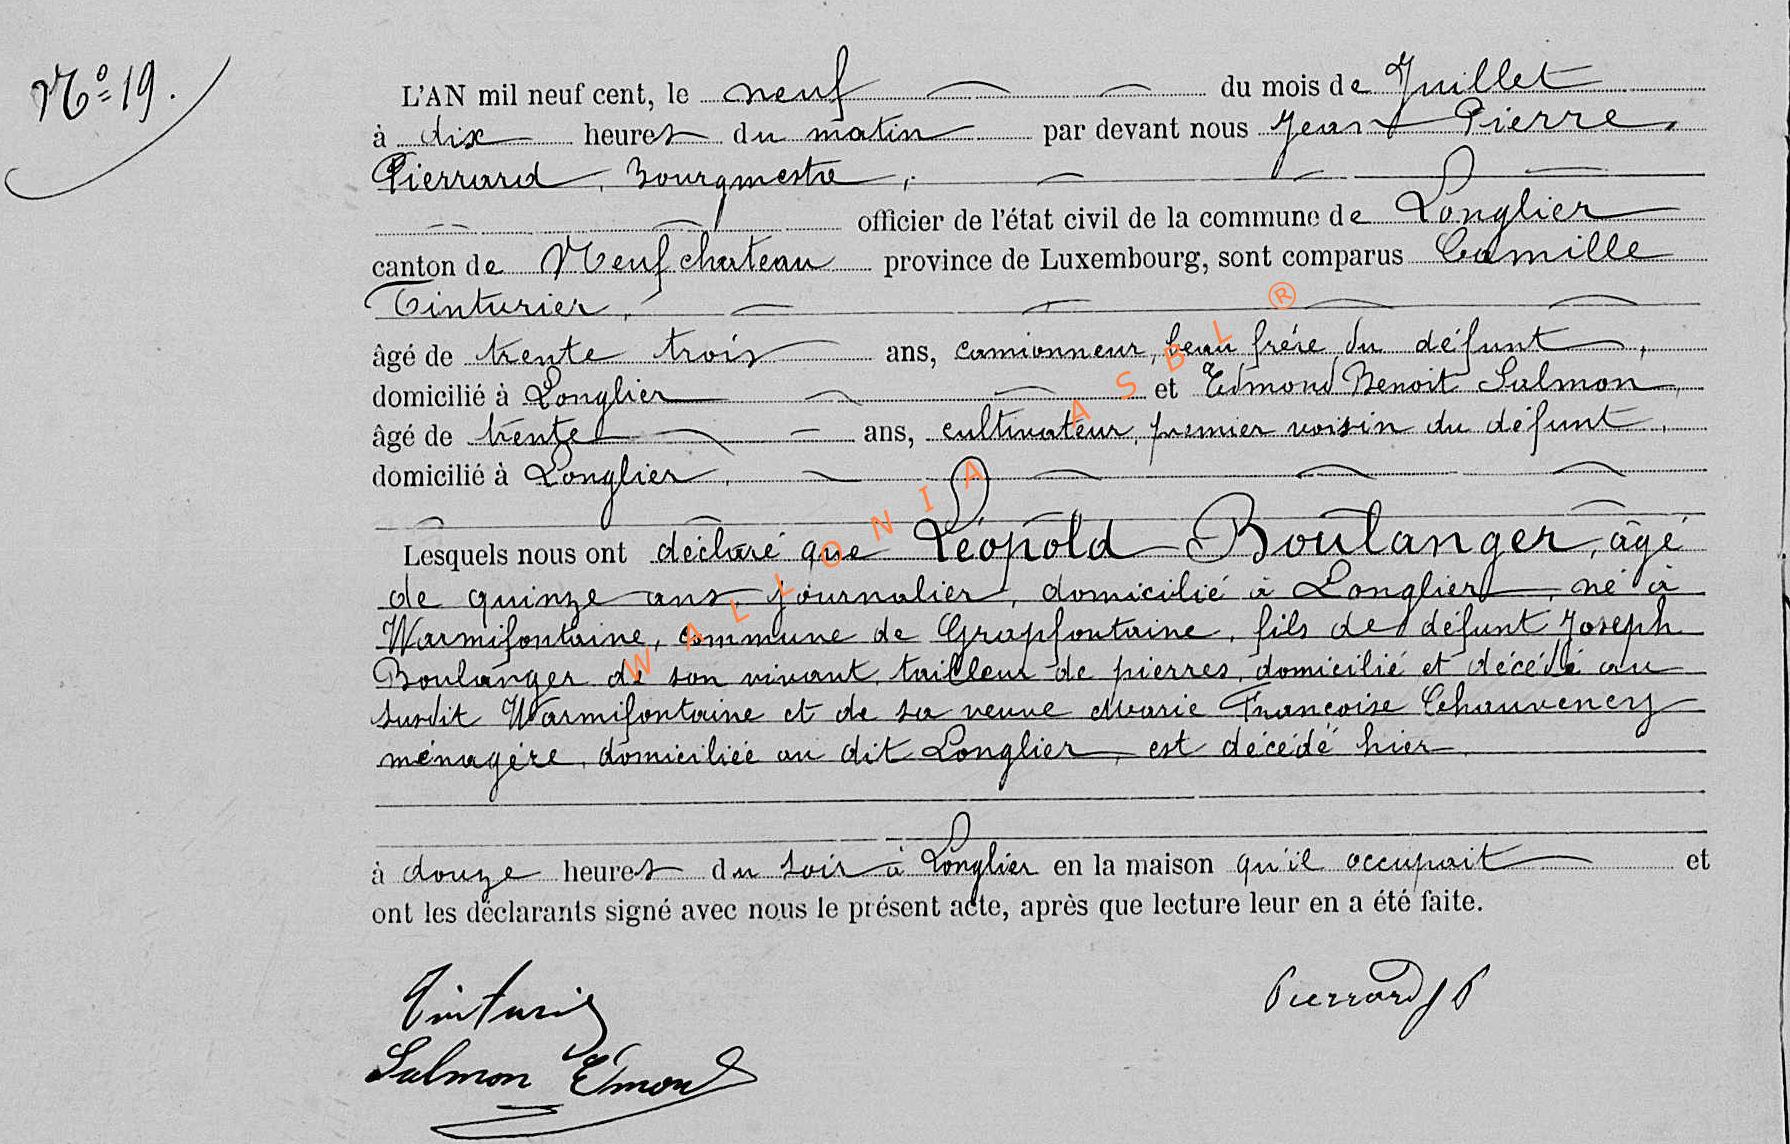 N° 19.
L'AN mil neuf cent, le neuf du mois de Juillet
à dix heures du matin par devant nous Jean Pierre
Pierrard, Bourgmestre,
officier de l'état civil de la commune de Longlier
canton de Neufchateau province de Luxembourg, sont comparus Camille
Tinturier,
âgé de trente trois ans, camionneur, beau frére du défunt,
domicilié à Longlier et Edmond Benoit Salmon,
âgé de trente ans, cultivateur, premier voisin du défunt,
domicilié à Longlier,
Lesquels nous ont déclaré que Léopold Boulanger, âgé
de quinze ans, journalier, domicilié à Longlier, né à
Warmifontaine, commune de Grapfontaine, fils de défunt Joseph
Boulanger de son vivant tailleur de pierres, domicilié et décédé au
susdit Warmifontaine et de sa veuve Marie Françoise Chauvency
ménagére, domiciliée au dit Longlier, est décédé hier
à douze heures du soir à Longlier en la maison qu'il occupait et
ont les déclarants signé avec nous le présent acte, après que lecture leur en a été faite.
Tinturier
Pierrard JP
Salmon Emond
WALLONIA ASBL ®